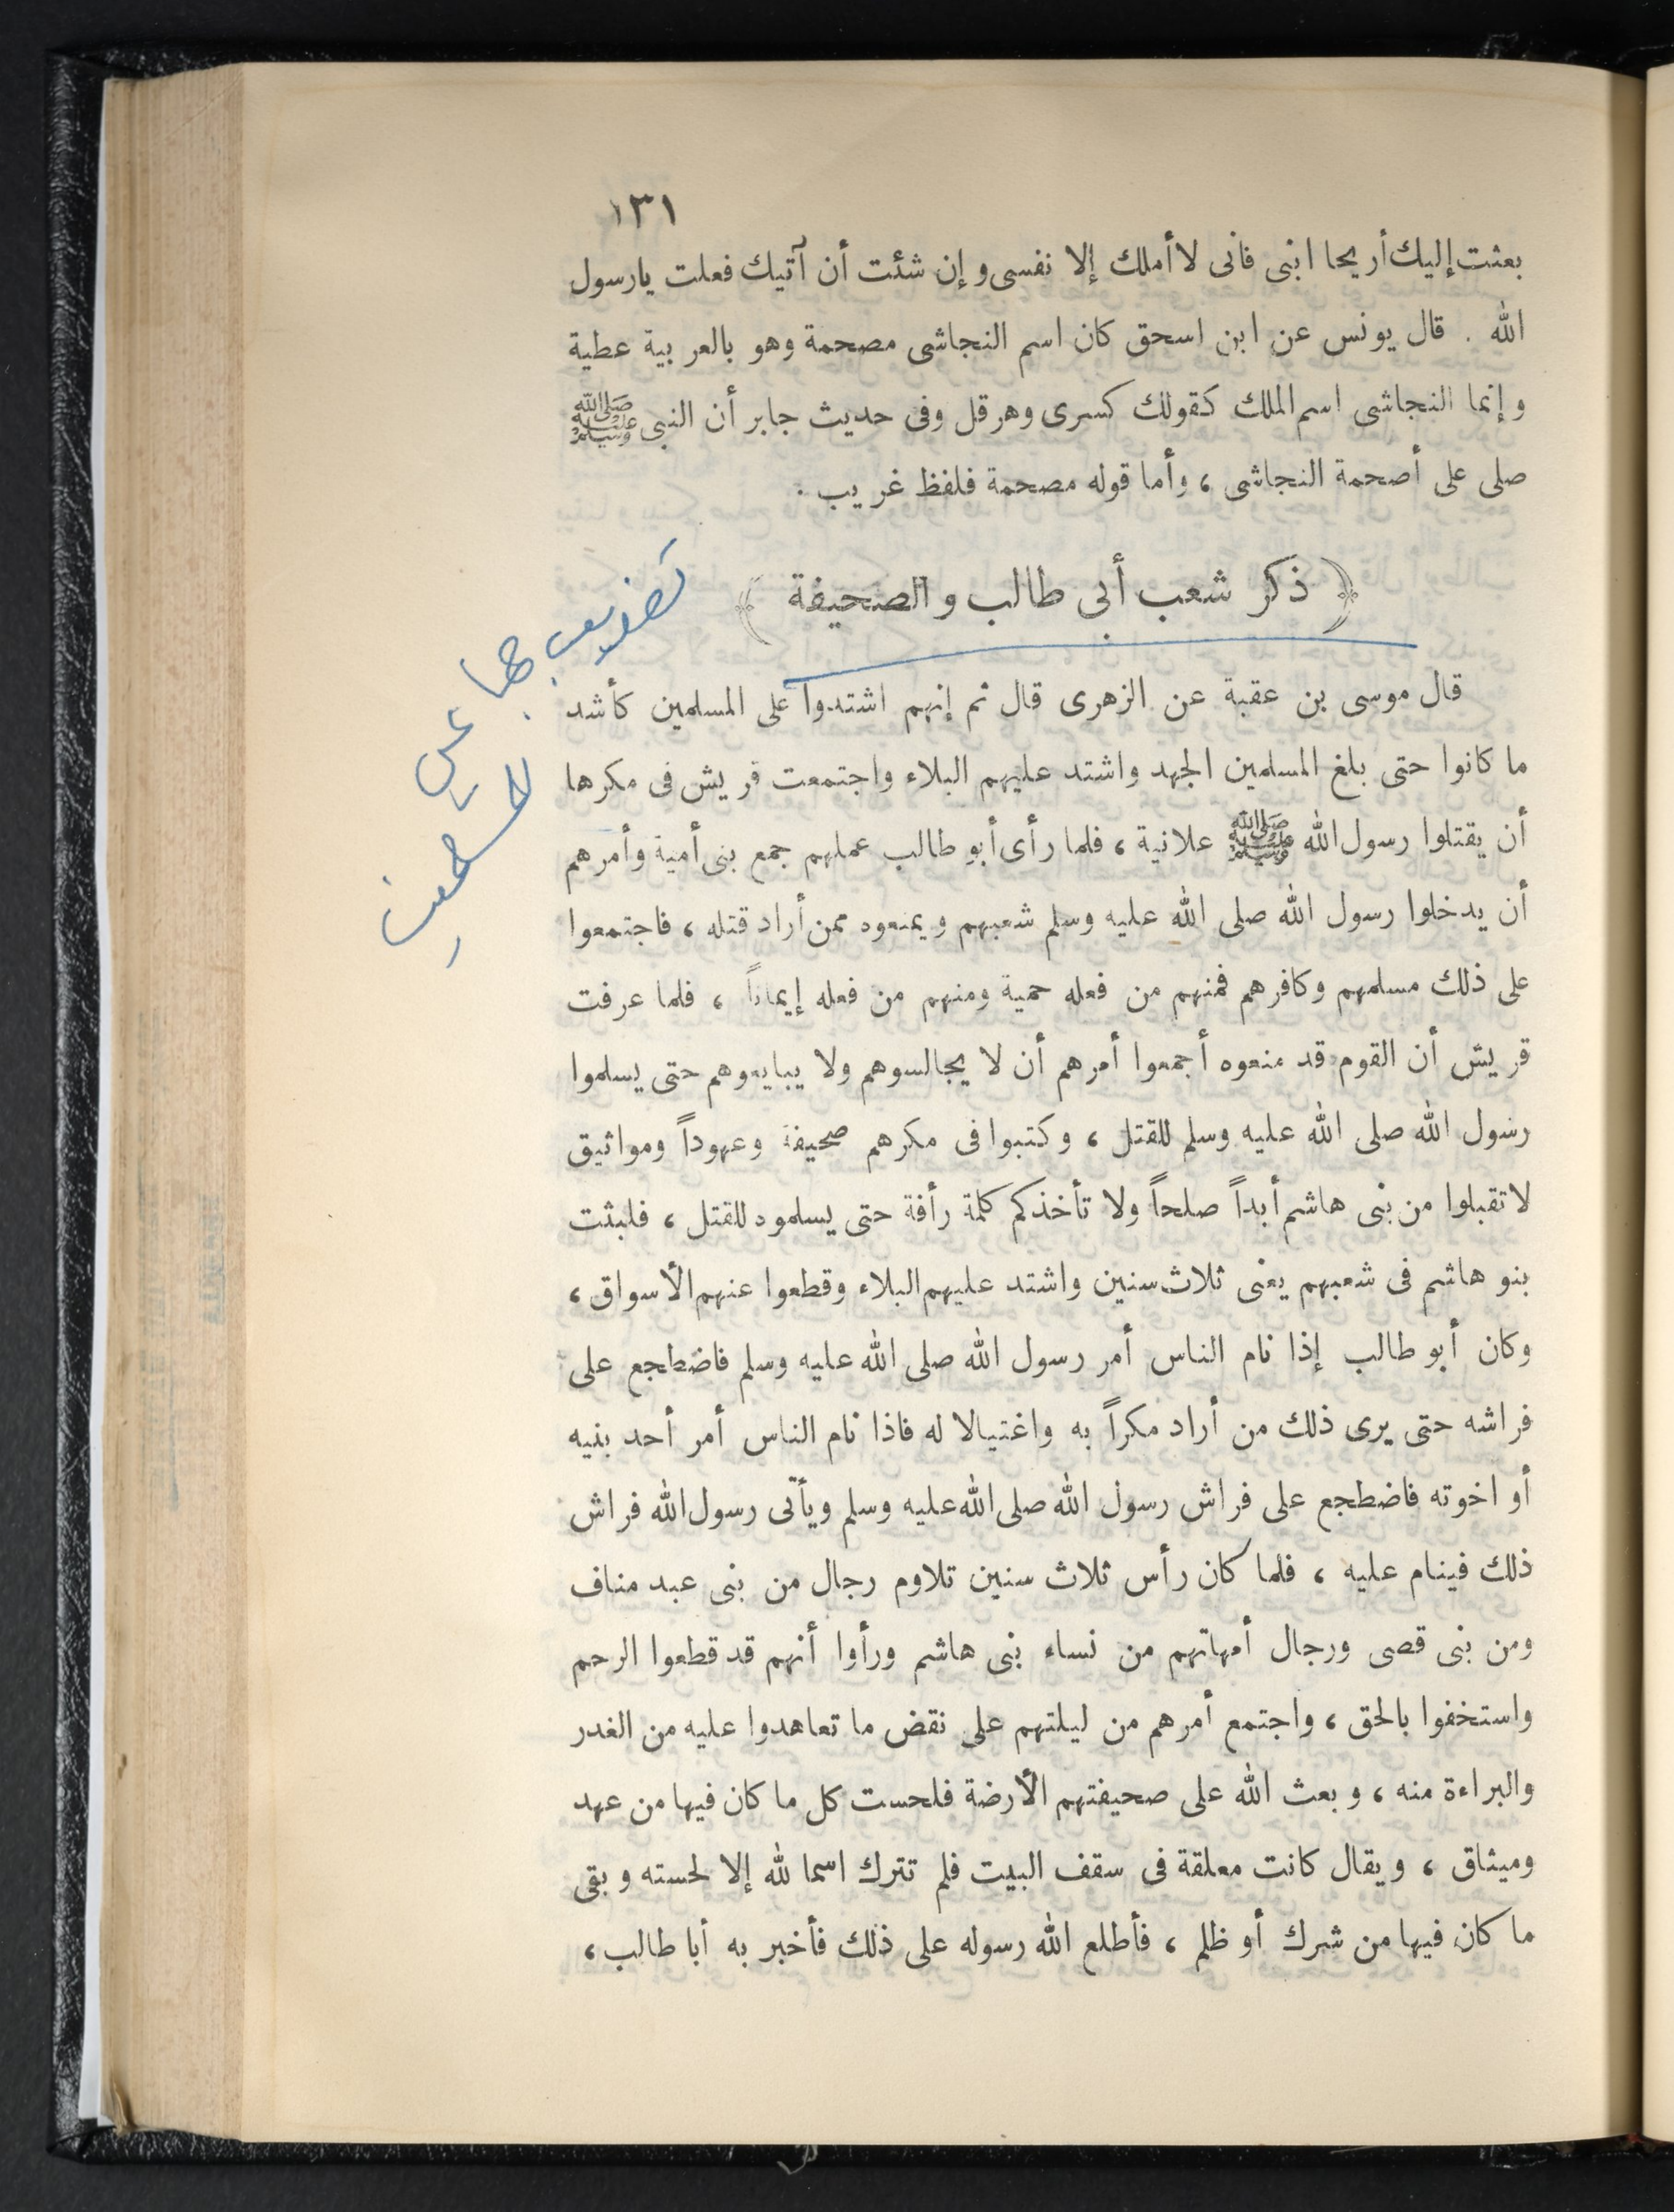 ١٣١
بعثت إليك أريحا ابنى فانى لا أملك إلا نفسى و إن شئت أن آتيك فعلت يارسول
الله . قال يونس عن ابن اسحق كان اسم النجاشى مصحمة وهو بالعربية عطية
و إنما النجاشى اسم الملك كقولك كسرى وهرقل وفى حديث جابر أن النبى ﷺ
صلى على أصحمة النجاشى ، وأما قوله مصحمة فلفظ غريب .
﴿ ذكر شعب أبى طالب و الصحيفة ﴾
قال موسى بن عقبة عن الزهرى قال ثم إنهم اشتدوا على المسلمين كأشد
ما كانوا حتى بلغ المسلمين الجهد واشتد عليهم البلاء واجتمعت قريش فى مكرها
أن يقتلوا رسول الله ﷺ علانية ، فلما رأى أبو طالب عملهم جمع بنى أمية وأمرهم
أن يدخلوا رسول الله صلى الله عليه وسلم شعبهم ويمنعوه ممن أراد قتله ، فاجتمعوا
على ذلك مسلمهم وكافرهم فمنهم من فعله حمية ومنهم من فعله إيماناً ، فلما عرفت
قريش أن القوم قد منعوه أجمعوا أمرهم أن لا يجالسوهم ولا يبايعوهم حتى يسلموا
رسول الله صلى الله عليه وسلم للقتل ، وكتبوا فى مكرهم صحيفة وعهوداً ومواثيق
لا تقبلوا من بنى هاشم أبداً صلحاً ولا تأخذكم كلمة رأفة حتى يسلموه للقتل ، فلبثت
بنو هاشم فى شعبهم يعنى ثلاث سنين واشتد عليهم البلاء وقطعوا عنهم الأسواق ،
وكان أبو طالب إذا نام الناس أمر رسول الله صلى الله عليه وسلم فاضطجع على
فراشه حتى يرى ذلك من أراد مكراً به واغتيالا له فاذا نام الناس أمر أحد بنيه
أو اخوته فاضطجع على فراش رسول الله صلى الله عليه وسلم ويأتى رسول الله فراش
ذلك فينام عليه ، فلما كان رأس ثلاث سنين تلاوم رجال من بنى عبد مناف
ومن بنى قصى ورجال أمهاتهم من نساء بنى هاشم ورأوا أنهم قد قطعوا الرحم
واستخفوا بالحق ، واجتمع أمرهم من ليلتهم على نقض ما تعاهدوا عليه من الغدر
والبراءة منه ، وبعث الله على صحيفتهم الأرضة فلحست كل ما كان فيها من عهد
وميثاق ، ويقال كانت معلقة فى سقف البيت فلم تترك اسما لله إلا لحسته وبقى
ما كان فيها من شرك أو ظلم ، فأطلع الله رسوله على ذلك فأخبر به أبا طالب ،